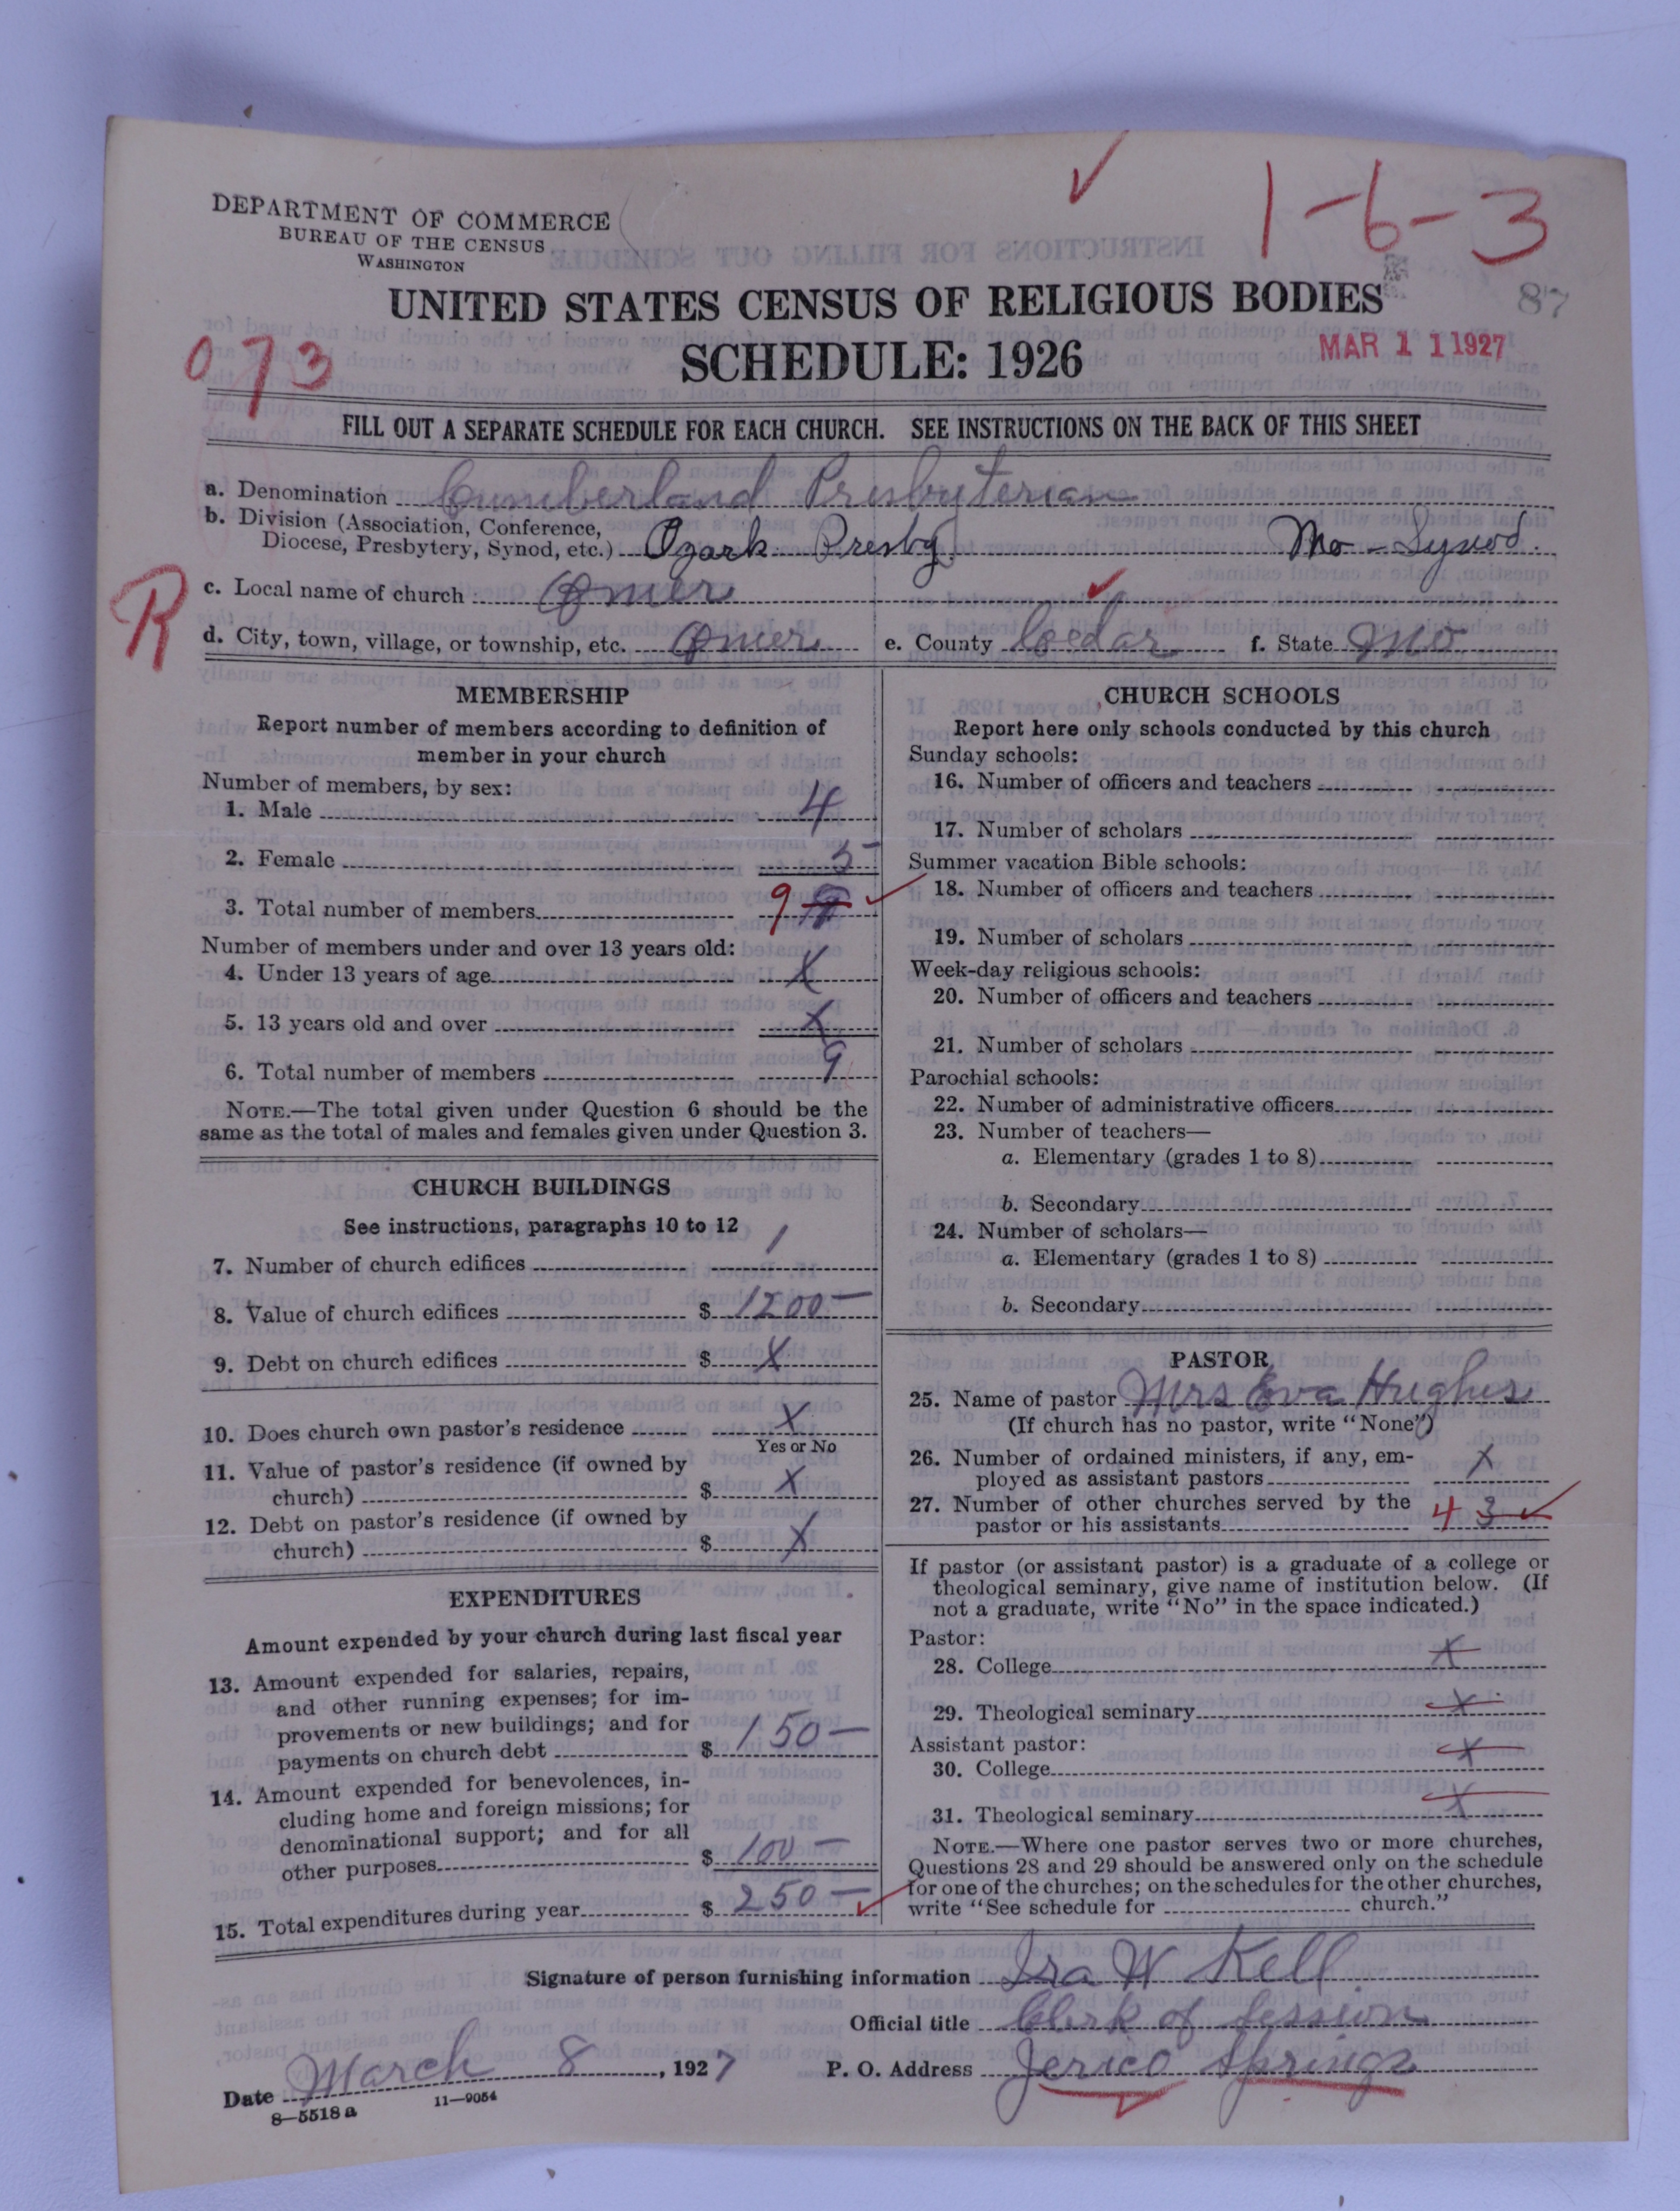 DEPARTMENT OF COMMERCE
BUREAU OF THE CENSUS
WASHINGTON
1-6-3
87
UNITED STATES CENSUS OF RELIGIOUS BODIES
SCHEDULE: 1926
MAR 11 1927
073
FILL OUT A SEPARATE SCHEDULE FOR EACH CHURCH. SEE INSTRUCTIONS ON THE BACK OF THIS SHEET
a. Denomination Cumberland Presbyterian
b. Division (Association, Conference,
Diocese, Presbytery, Synod, etc.) Ozark Presby Mo - Synod.
R
c. Local name of church Omer
d. City, town, village, or township, etc. Omer e. County Cedar f. State Mo
MEMBERSHIP
Report number of members according to definition of
member in your church
Number of members, by sex:
1. Male 4
2. Female 5
3. Total number of members 9
Number of members under and over 13 years old:
4. Under 13 years of age X
5. 13 years old and over X
6. Total number of members 9
NOTE.—The total given under Question 6 should be the
same as the total of males and females given under Question 3.
CHURCH BUILDINGS
See instructions, paragraphs 10 to 12
7. Number of church edifices 1
8. Value of church edifices $ 1200—
9. Debt on church edifices $ X
10. Does church own pastor's residence X
Yes or No
11. Value of pastor's residence (if owned by
church) $ X
12. Debt on pastor's residence (if owned by
church) $ X
EXPENDITURES
Amount expended by your church during last fiscal year
13. Amount expended for salaries, repairs,
and other running expenses; for im-
provements or new buildings; and for
payments on church debt $ 150—
14. Amount expended for benevolences, in-
cluding home and foreign missions; for
denominational support; and for all
other purposes $ 100—
15. Total expenditures during year $ 250—
CHURCH SCHOOLS
Report here only schools conducted by this church
Sunday schools:
16. Number of officers and teachers
17. Number of scholars
Summer vacation Bible schools:
18. Number of officers and teachers
19. Number of scholars
Week-day religious schools:
20. Number of officers and teachers
21. Number of scholars
Parochial schools:
22. Number of administrative officers
23. Number of teachers—
a. Elementary (grades 1 to 8)
b. Secondary
24. Number of scholars—
a. Elementary (grades 1 to 8)
b. Secondary
PASTOR
25. Name of pastor Mrs Eva Hughes
(If church has no pastor, write "None")
26. Number of ordained ministers, if any, em-
ployed as assistant pastors X
27. Number of other churches served by the
pastor or his assistants 4 3
If pastor (or assistant pastor) is a graduate of a college or
theological seminary, give name of institution below. (If
not a graduate, write "No" in the space indicated.)
Pastor:
28. College X
29. Theological seminary X
Assistant pastor:
30. College X
31. Theological seminary X
NOTE.—Where one pastor serves two or more churches,
Questions 28 and 29 should be answered only on the schedule
for one of the churches; on the schedules for the other churches,
write "See schedule for church."
Signature of person furnishing information Ira W Kell
Official title Clerk of Session
Date March 8, 1927 P. O. Address Jerico Springs
8—5518 a 11—9054